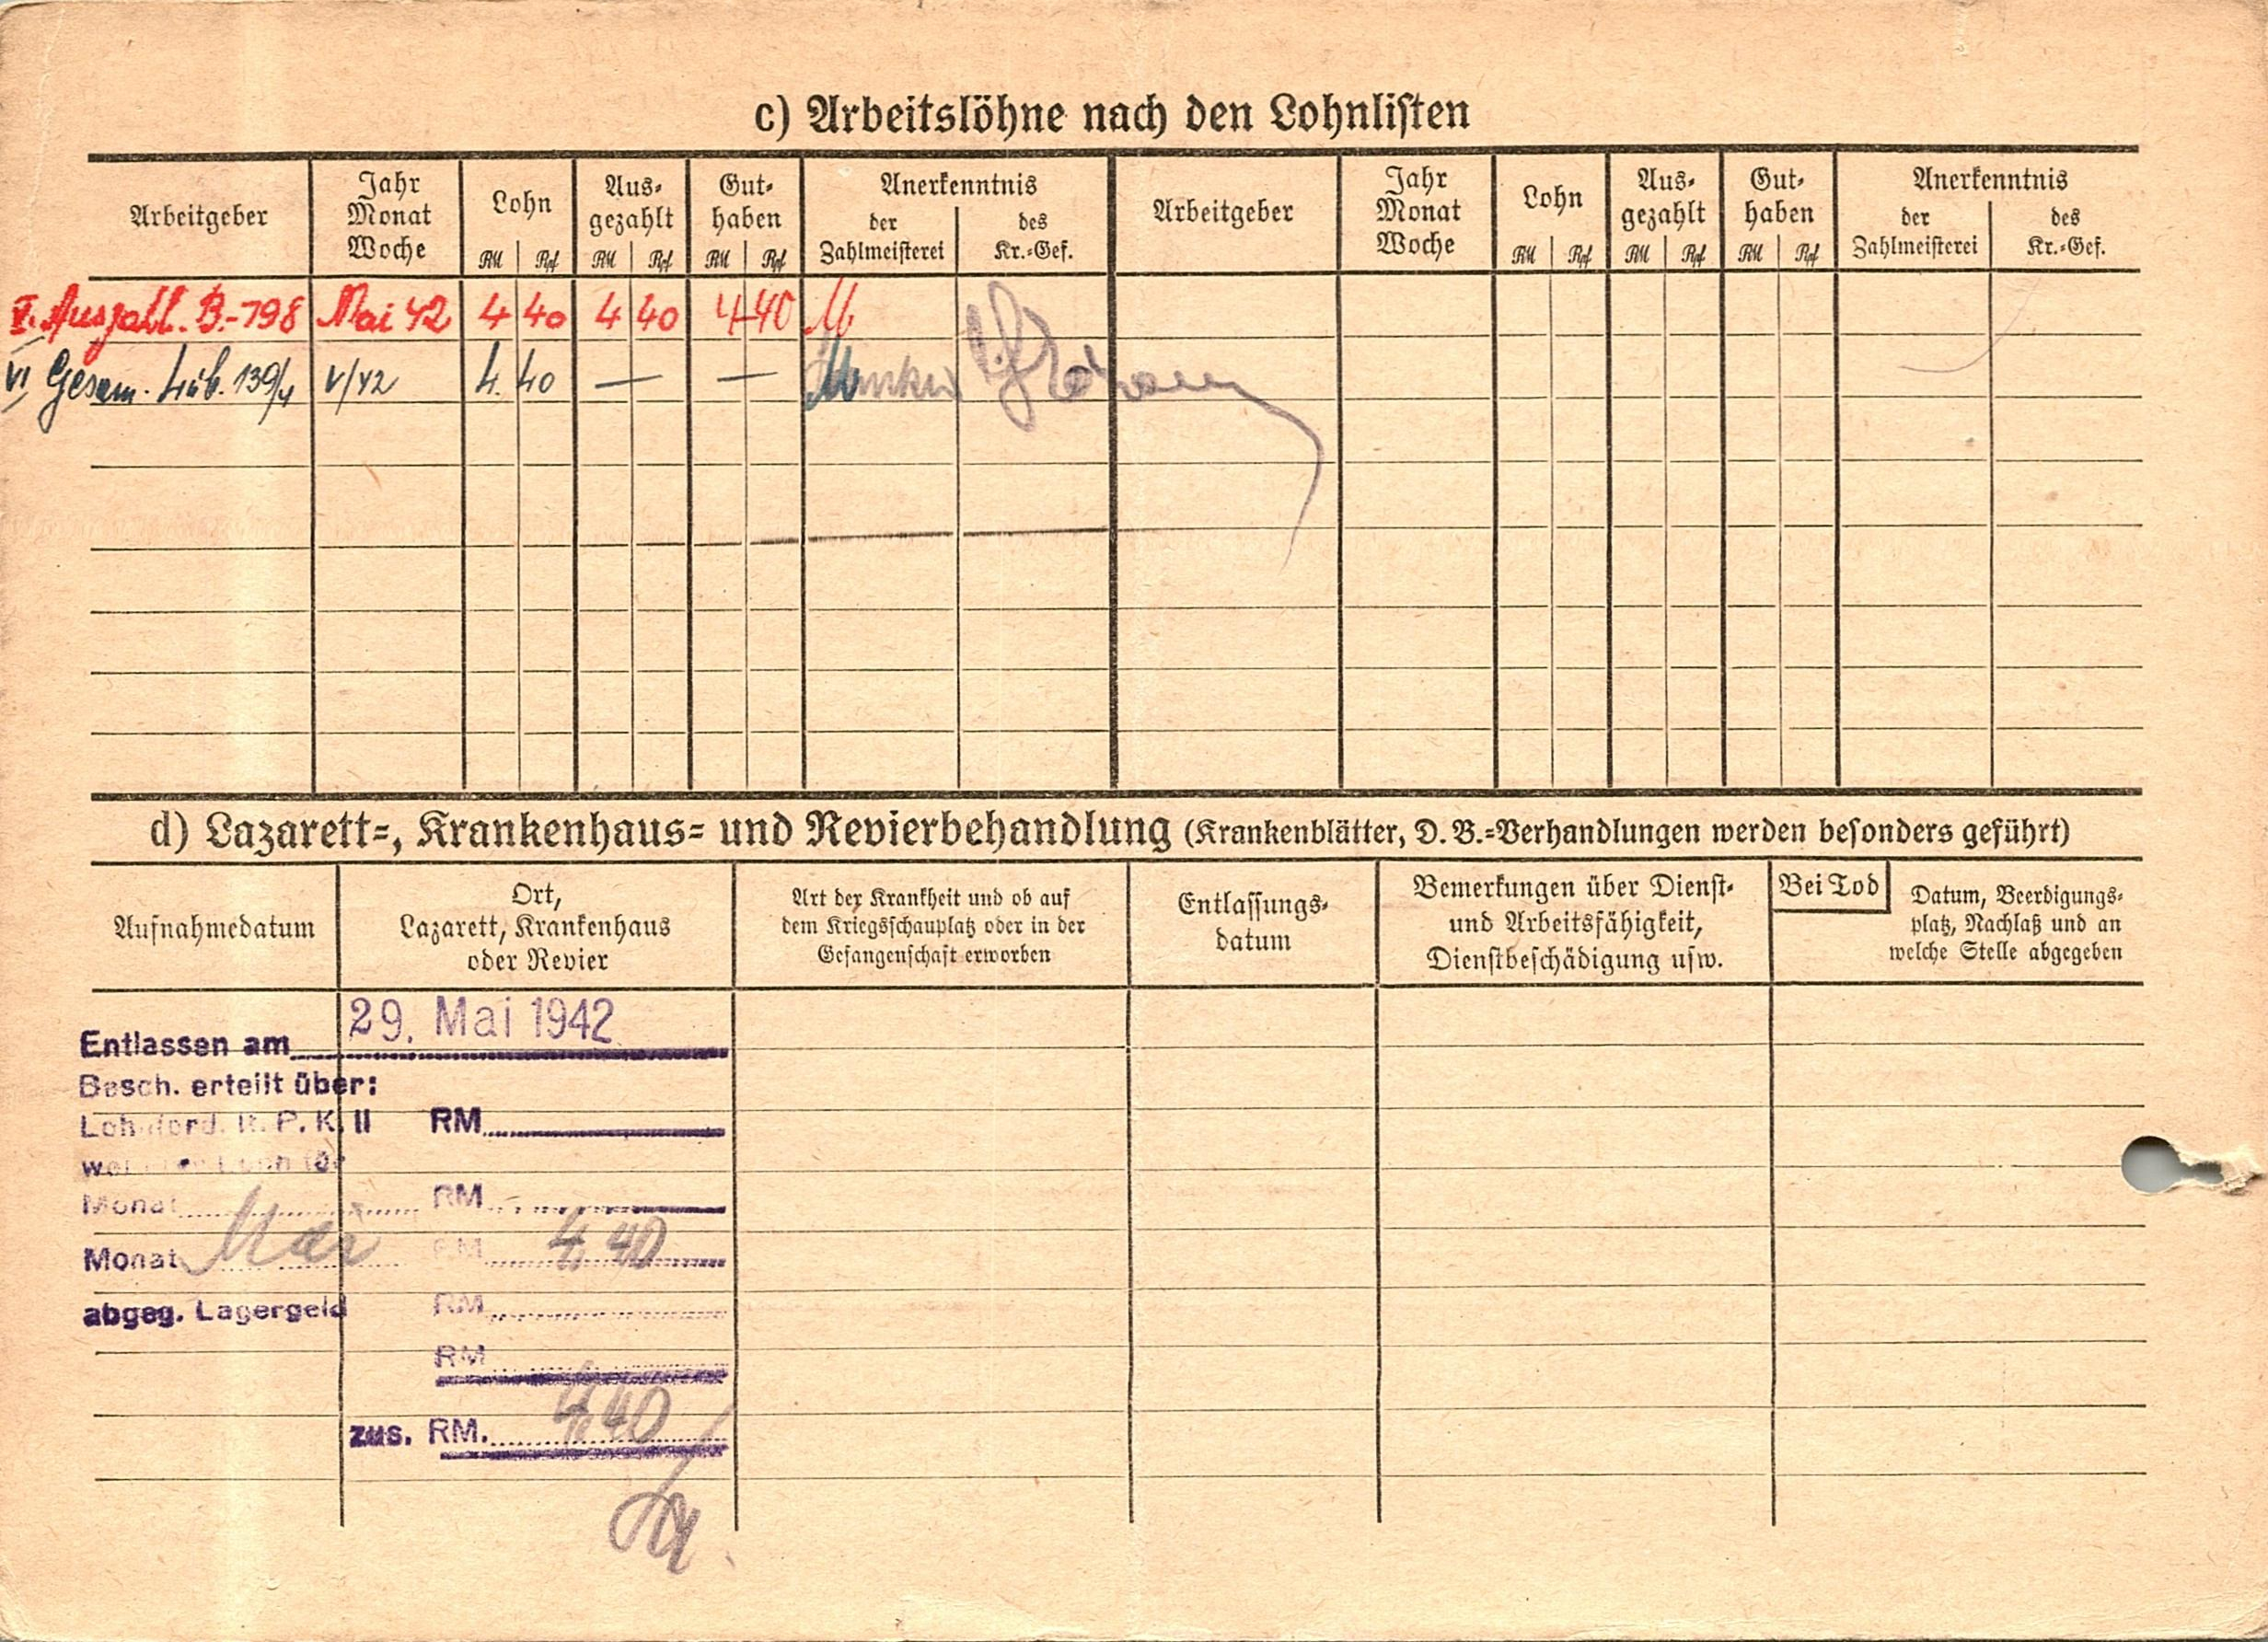 c) Arbeitslöhne nach den Lohnlisten
Arbeitgeber Jahr Monat Woche Lohn Aus- gezahlt Gut- haben Anerkenntnis der Zahlmeisterei des Kr.-Gef. Arbeitgeber Jahr Monat Woche Lohn Aus- gezahlt Gut- haben Anerkenntnis der Zahlmeisterei des Kr.-Gef.
RM Rpf RM Rpf RM Rpf RM Rpf RM Rpf RM Rpf
V. Auszahl. B.-798 Mai 42 4 40 4 40 4 40 M
VI Gesam. 139/4 V/42 4. 40 — —
d) Lazarett-, Krankenhaus- und Revierbehandlung (Krankenblätter, D. B.-Verhandlungen werden besonders geführt)
Aufnahmedatum
Ort,
Lazarett, Krankenhaus
oder Revier
Art der Krankheit und ob auf
dem Kriegsschauplatz oder in der
Gefangenschaft erworben
Entlassungs-
datum
Bemerkungen über Dienst-
und Arbeitsfähigkeit,
Dienstbeschädigung usw.
Bei Tod
Datum, Beerdigungs-
platz, Nachlaß und an
welche Stelle abgegeben
Entlassen am 29. Mai 1942
Besch. erteilt über:
Lohnford. K. P. K. II RM
RM
Monat RM
Monat Mai RM 4 40
abgeg. Lagergeld RM
RM
zus. RM. 4 40